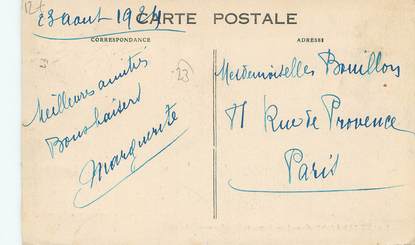 12+
23 aout 1924
CARTE POSTALE
CORRESPONDANCE
ADRESSE
23
Meilleures amitiés
Bons baisers
Marguerite
Mesdemoiselles Bouillon
11 Rue de Provence
Paris